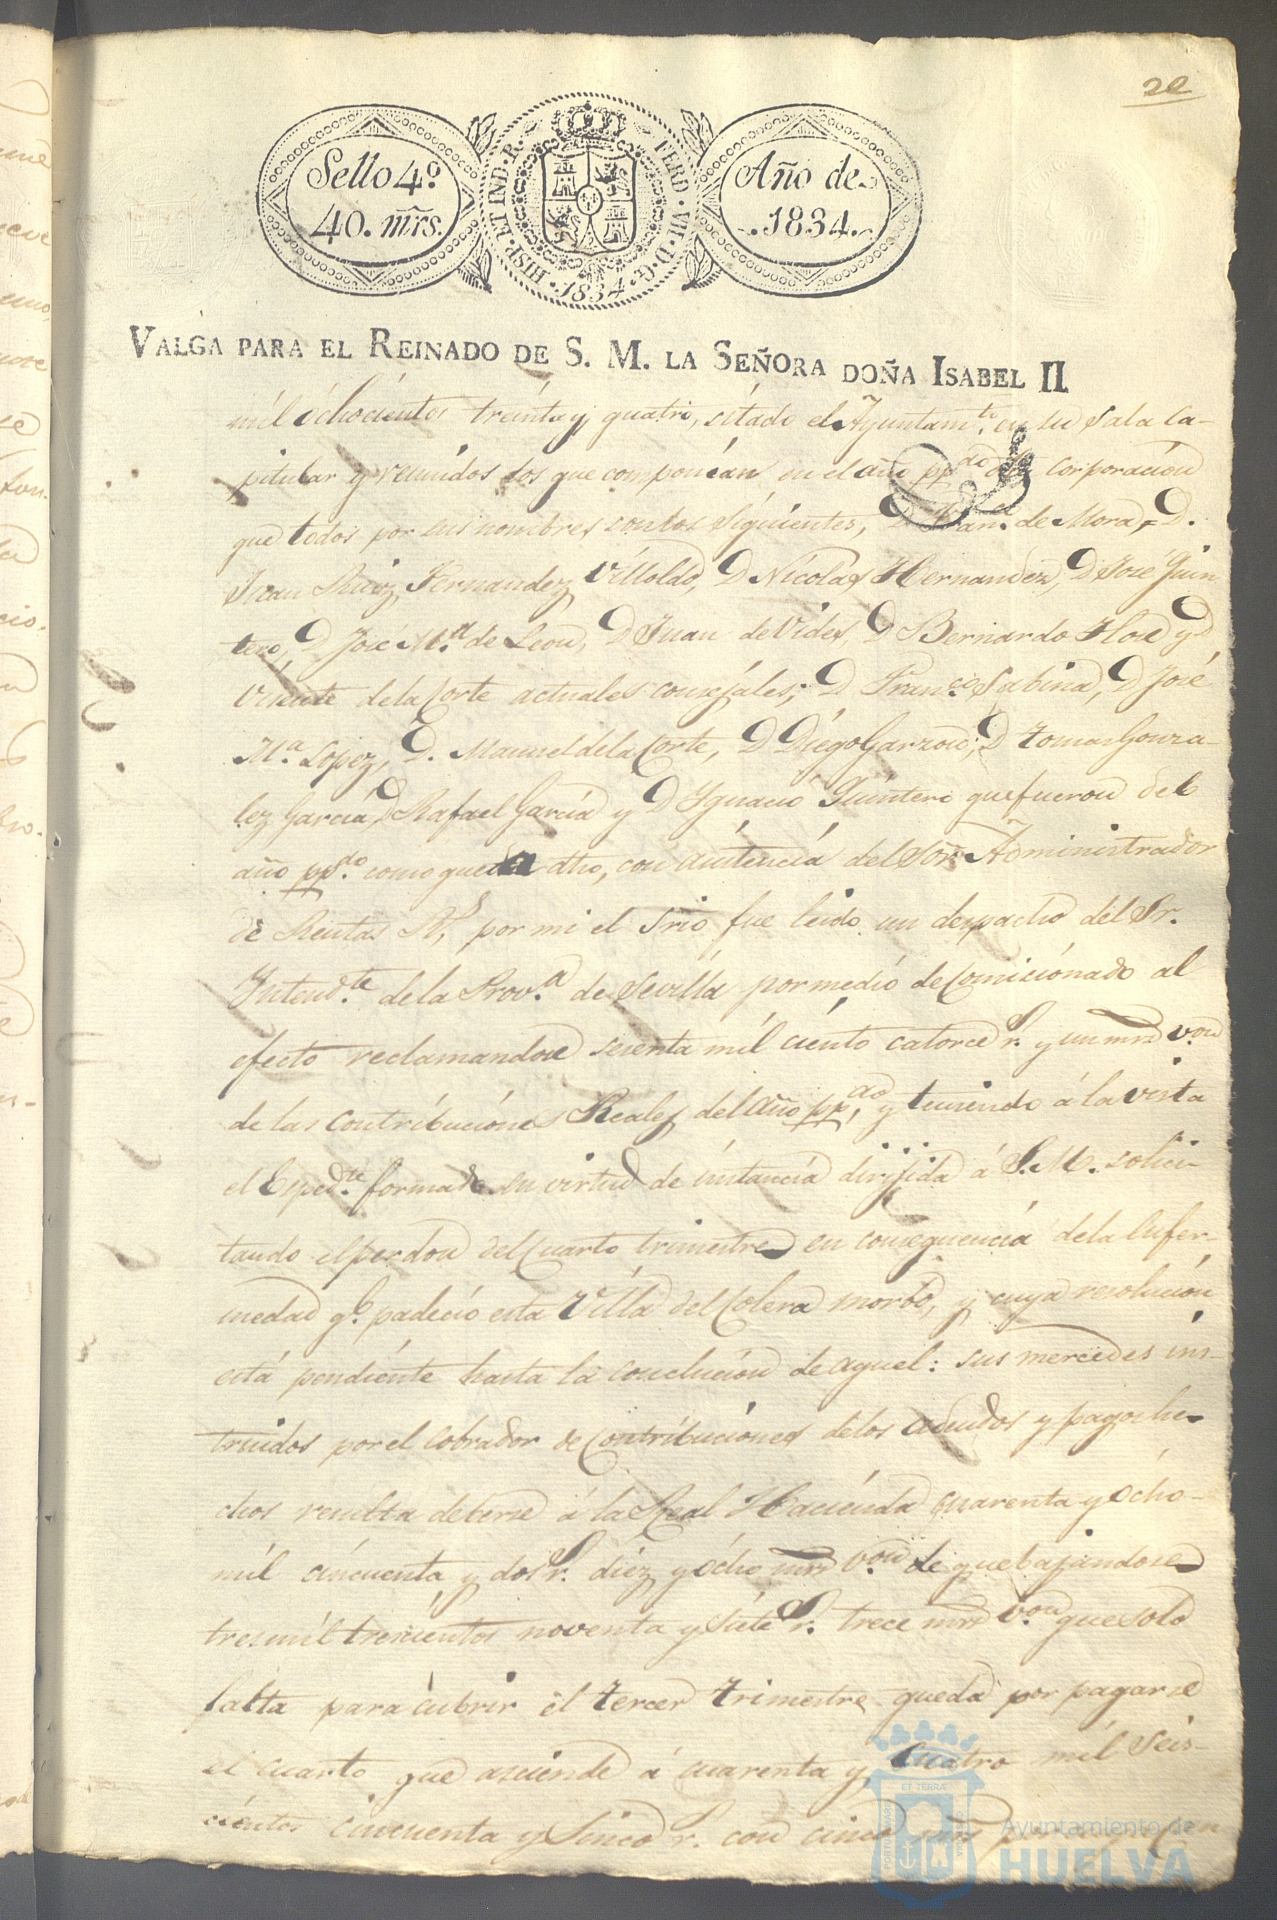 22
Sello 4º
40. mrs.
HISP. ET IND. R.
FERD. VII. D. G.
1834
Año de
1834.
VALGA PARA EL REINADO DE S. M. LA SEÑORA DOÑA ISABEL II
mil ochocientos treinta y quatro, sitado el Ayuntamto. en su Sala Ca-
pitular y reunidos los que componian en el año ppdo. corporacion
que todos por sus nombres son los siguientes, D. Franco. de Mora, D.
Juan Ruiz Fernandez Villoldo, D Nicolas Hernandez, D José Quin
tero, D José Ma. de Leon, D Juan de Vides, D Bernardo Floe y D
Vicente de la Corte actuales consejales; D Franco. Sabina, D José
Ma. Lopez, D. Manuel de la Corte, D Diego Garzon, D Tomas Gonza-
lez Garcia, D Rafael Garcia y D Ygnacio Quintero que fueron del
año ppdo. como queda dho, con asistencia del Sor. Administrador
de Rentas Rs, por mi el Srio fue leido un despacho del Sr.
Yntendte. de la Prova. de Sevilla por medio de Comicionado al
efecto reclamandose sesenta mil ciento catorce rs. y un mrs von
de las contribuciones Reales del año ppdo, y teniendo á la vista
el Espedte. formado en virtud de instancia dirijida á S. M. solici-
tando el perdon del Cuarto trimestre en consequencia de la Enfer-
medad qe. padecio esta Villa del Colera morbo, y cuya resolucion
está pendiente hasta la conclucion de aquel: sus mercedes ins-
truidos por el Cobrador de Contribuciones de los adeudos y pagos he-
chos resulta deberse á la Real Hacienda quarenta y ocho
mil cincuenta y dos rs. diez y ocho mrs von de que bajandose
tres mil trescientos noventa y siete rs. trece mrs von que solo
falta para cubrir el tercer trimestre queda por pagarse
el cuarto que asciende á cuarenta y cuatro mil seis-
cientos cincuenta y Sinco rs. con cinco mrs
Ayuntamiento de
HUELVA